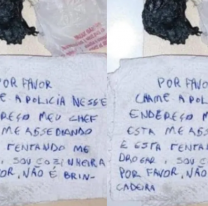 POR FAVOR
E A POLICIA NESSE
EREÇO MEU CHEF
ME ASSEDIANDO
TENTANDO ME
SOU COZINHEIRA
OR, NÃO É BRIN-
POR FAVOR
CHAME A POL
ENDEREÇO M
ESTA ME ASSE
E ESTA TENTAN
DROGAR, SOU CO
POR FAVOR, NÃO
CADEIRA